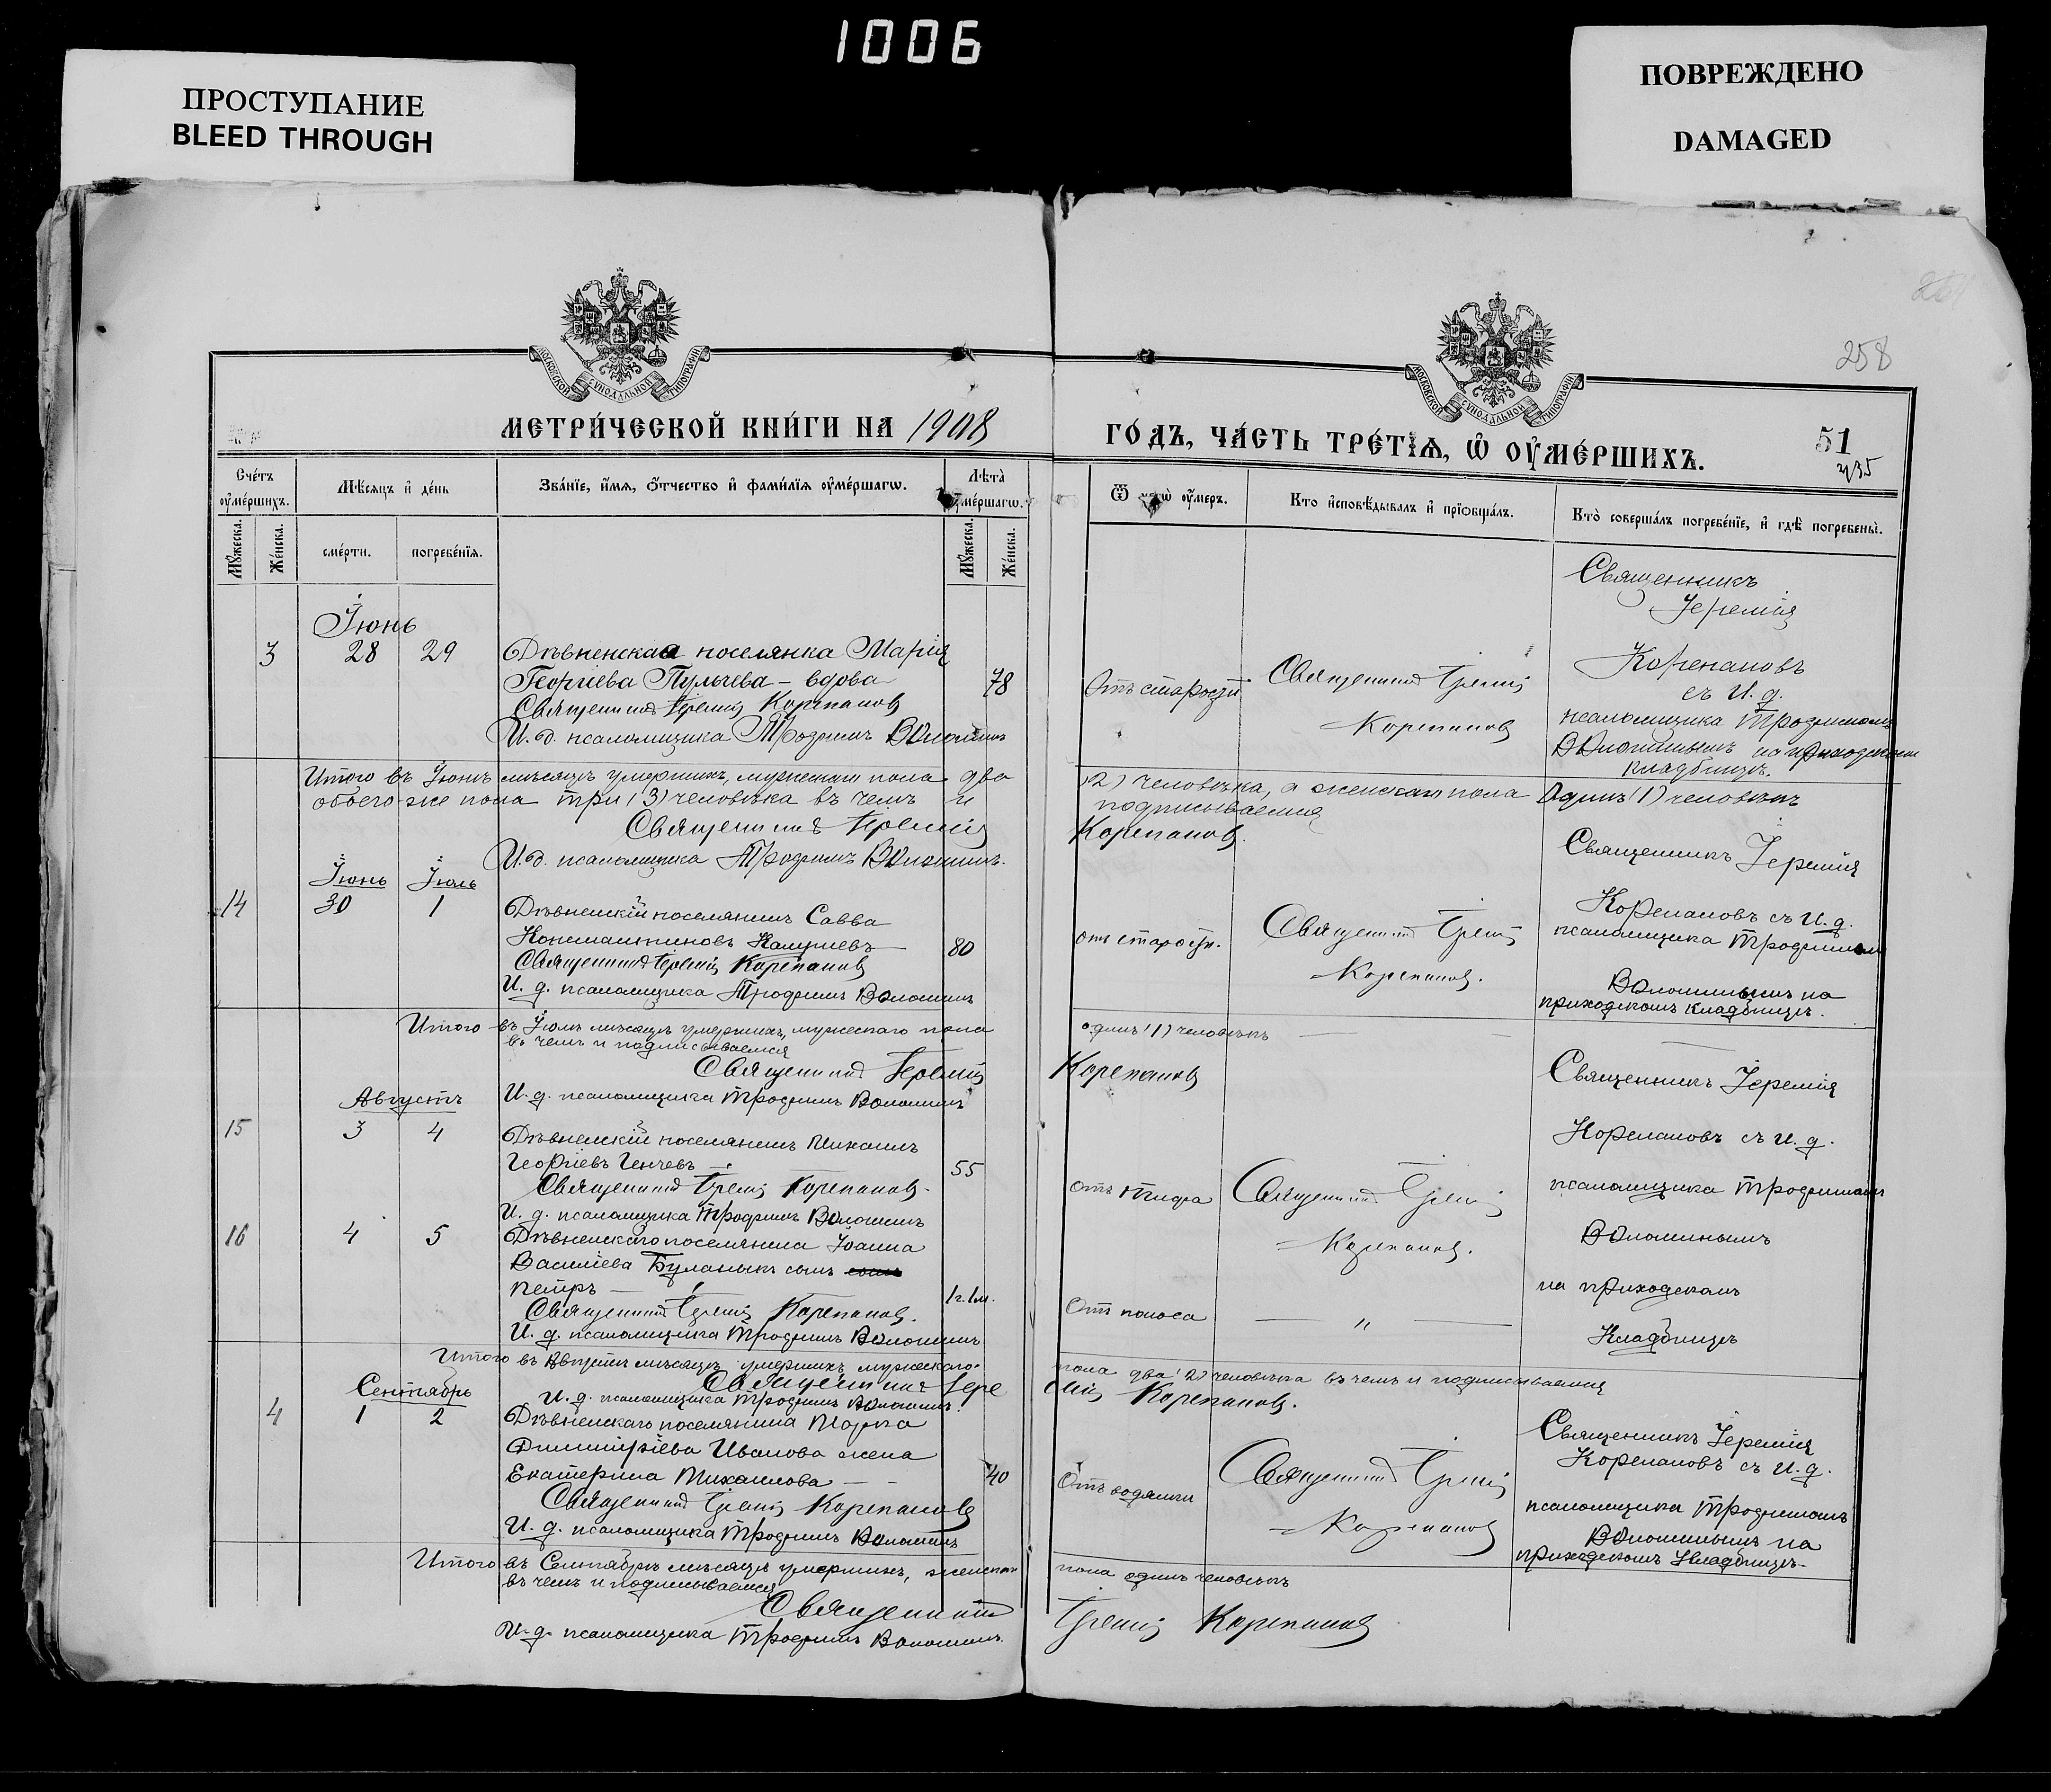 1006
ПРОСТУПАНИЕ
BLEED THROUGH
ПОВРЕЖДЕНО
DAMAGED
258
МОСКОВСКОЙ СѴНОДАЛЬНОЙ ТИПОГРАФІИ
МОСКОВСКОЙ СѴНОДАЛЬНОЙ ТИПОГРАФІИ
МЕТРИ́ЧЕСКОЙ КНИ́ГИ НА 1908
ГО́ДЪ, ЧА́СТЬ ТРЕ́ТІѦ, Ѡ҆ ОУ҆МЕ́РШИХЪ.
51
Сче́тъ оу҆ме́ршихъ.
Мѣ́сяцъ и҆ де́нь
Зва́нїе, и҆́мя, ѻ҆́тчество и҆ фами́лїя оу҆ме́ршагѡ.
Лѣта̀ оу҆ме́ршагѡ.
Ѿ чегѡ̀ оу҆́меръ.
Кто̀ и҆сповѣ́дывалъ и҆ прїѻбща́лъ.
Кто̀ соверша́лъ погребе́нїе, и҆ гдѣ̀ погребены̀.
Мꙋ́жеска.
Же́нска.
сме́рти.
погребе́нїя.
Мꙋ́жеска.
Же́нска.
Іюнь
3 28 29 Дѣвненская поселянка Марія
Георгіева Пульчева - вдова 78
Священникъ Іеремія Корепановъ
И. д. псаломщика Трофимъ Волошинъ
Отъ старости
Священникъ Іеремія
Корепановъ
Священникъ
Іеремія
Корепановъ
съ И. д.
псаломщика Трофимомъ
Волошинымъ на приходскомъ
кладбищѣ.
Итого въ Іюнѣ мѣсяцѣ умершихъ, мужескаго пола два
(2) человѣка, а женскаго пола Одинъ (1) человѣкъ
обоего-же пола три (3) человѣка въ чемъ и
подписываемся
Священникъ Іеремія
Корепановъ.
И. д. псаломщика Трофимъ Волошинъ.
Іюнь Іюль
14 30 1 Дѣвненскій поселянинъ Савва
Константиновъ 80
Священникъ Іеремія Корепановъ
И. д. псаломщика Трофимъ Волошинъ
отъ старости.
Священникъ Іеремія
Корепановъ.
Священникъ Іеремія
Корепановъ съ И. д.
псаломщика Трофимомъ
Волошинымъ на
приходскомъ кладбищѣ.
Итого въ Іюлѣ мѣсяцѣ умершихъ, мужескаго пола
одинъ (1) человѣкъ
въ чемъ и подписываемся
Священникъ Іеремія
Корепановъ
И. д. псаломщика Трофимъ Волошинъ
Августъ
15 3 4 Дѣвненскій поселянинъ Михаилъ
Георгіевъ Генчевъ - 55
Священникъ Іеремія Корепановъ.
И. д. псаломщика Трофимъ Волошинъ
Отъ тифа
Священникъ Іеремія
Корепановъ.
16 4 5 Дѣвненскаго поселянина Іоанна
Василіева Буланыкъ сынъ сынъ
Петръ — 1 г. 1 м.
Священникъ Іеремія Корепановъ.
И. д. псаломщика Трофимъ Волошинъ
Отъ поноса
— „ —
Священникъ Іеремія
Корепановъ съ И. д.
псаломщика Трофимомъ
Волошинымъ
на приходскомъ
Кладбищѣ
Итого въ Августѣ мѣсяцѣ умершихъ мужескаго
пола два (2) человѣка въ чемъ и подписываемся
Священникъ Іере
мія Корепановъ.
И. д. псаломщика Трофимъ Волошинъ.
Сентябрь
4 1 2 Дѣвненскаго поселянина Марка
Димитріева Иванова жена
Екатерина Михаилова — - 40
Священникъ Іеремія Корепановъ
И. д. псаломщика Трофимъ Волошинъ
Отъ водянки
Священникъ Іеремія
Корепановъ
Священникъ Іеремія
Корепановъ съ И. д.
псаломщика Трофимомъ
Волошинымъ на
приходскомъ Кладбищѣ-
Итого въ Сентябрѣ мѣсяцѣ умершихъ, женскаго
пола одинъ человѣкъ
въ чемъ и подписываемся
Священникъ
Іеремія Корепановъ
И. д. псаломщика Трофимъ Волошинъ.